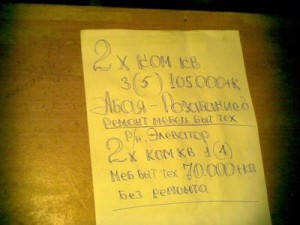 2х ком кв
3(5) 105000тк
Абая - 
ремонт мебел быт тех
р/н. Элеватор
2х ком кв 1(4)
меб быт тех 70.000
Без ремонта